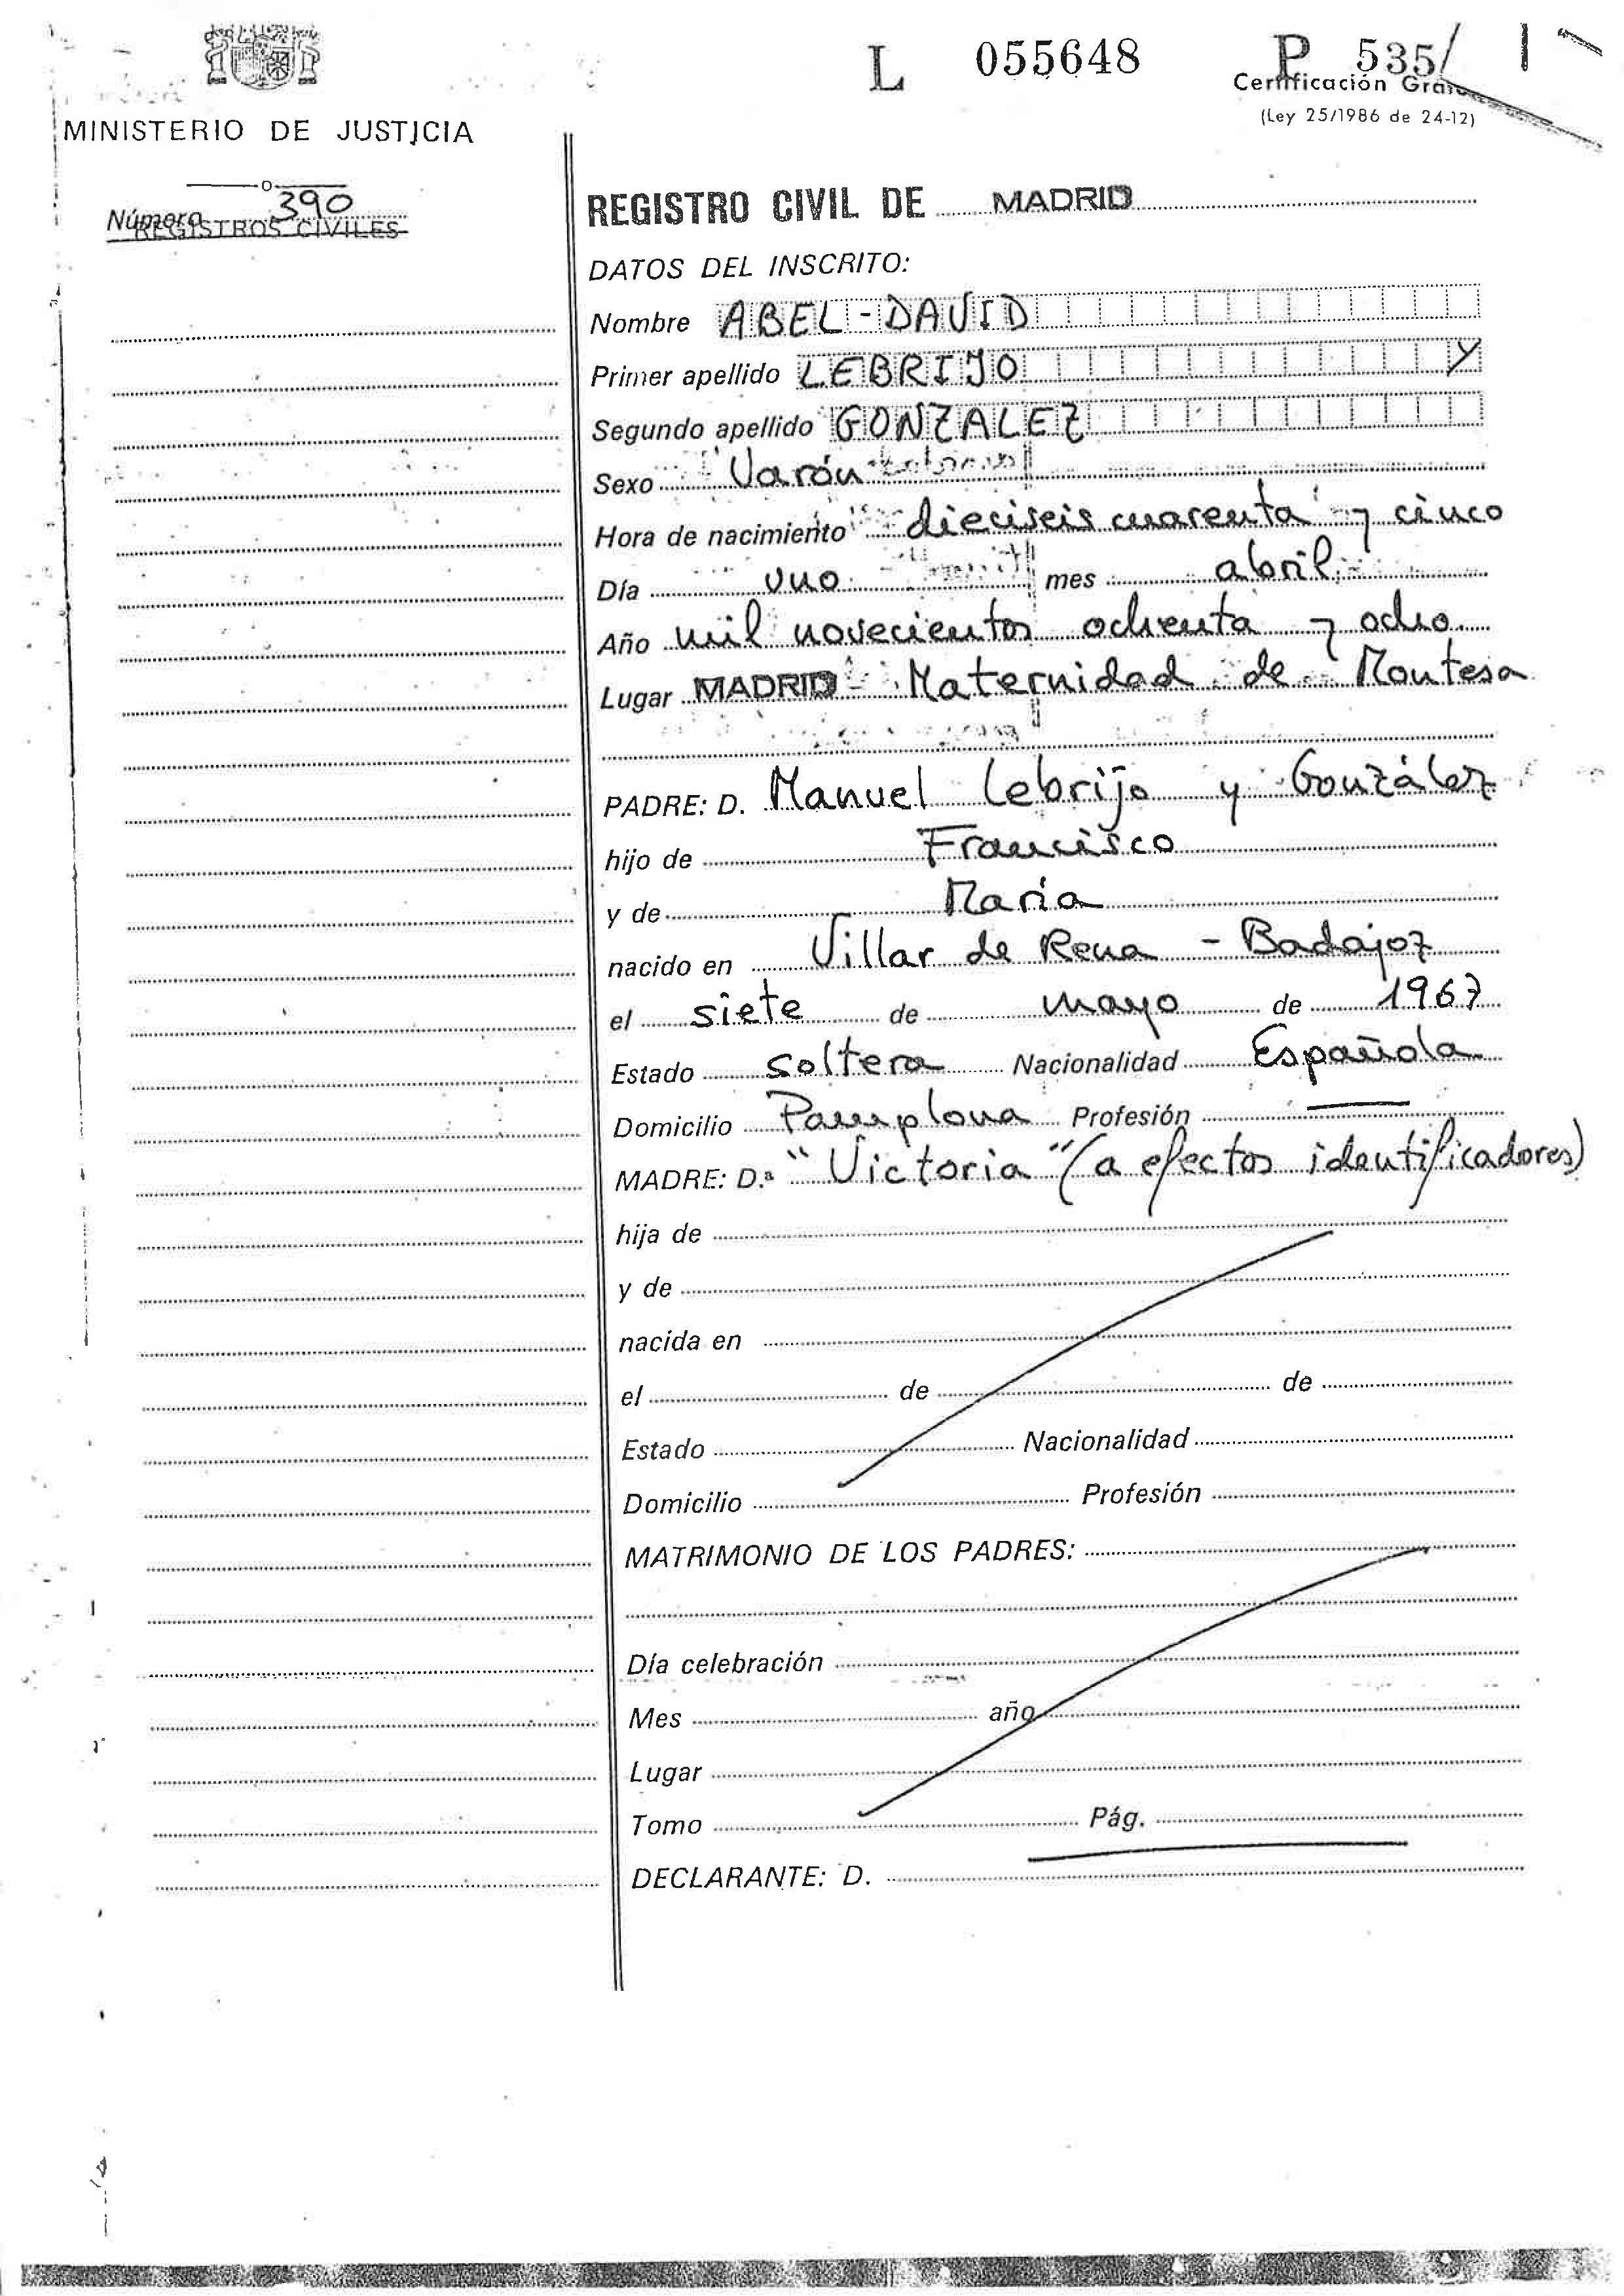 L 055648 P 535/
Certificación Gratuita
(Ley 25/1986 de 24-12)
MINISTERIO DE JUSTICIA
Número 390
REGISTROS CIVILES
REGISTRO CIVIL DE MADRID
DATOS DEL INSCRITO:
Nombre ABEL-DAVID
Primer apellido LEBRIJO Y
Segundo apellido GONZALEZ
Sexo Varón
Hora de nacimiento dieciseis cuarenta y cinco
Día uno mes abril
Año mil novecientos ochenta y ocho
Lugar MADRID Maternidad de Montesa
PADRE: D. Manuel Lebrijo y González
hijo de Francisco
y de María
nacido en Villar de Rena - Badajoz
el siete de mayo de 1967
Estado soltera Nacionalidad Española
Domicilio Pamplona Profesión —
MADRE: D.ª "Victoria" (a efectos identificadores)
hija de
y de
nacida en
el de de
Estado Nacionalidad
Domicilio Profesión
MATRIMONIO DE LOS PADRES:
Día celebración
Mes año
Lugar
Tomo Pág.
DECLARANTE: D.